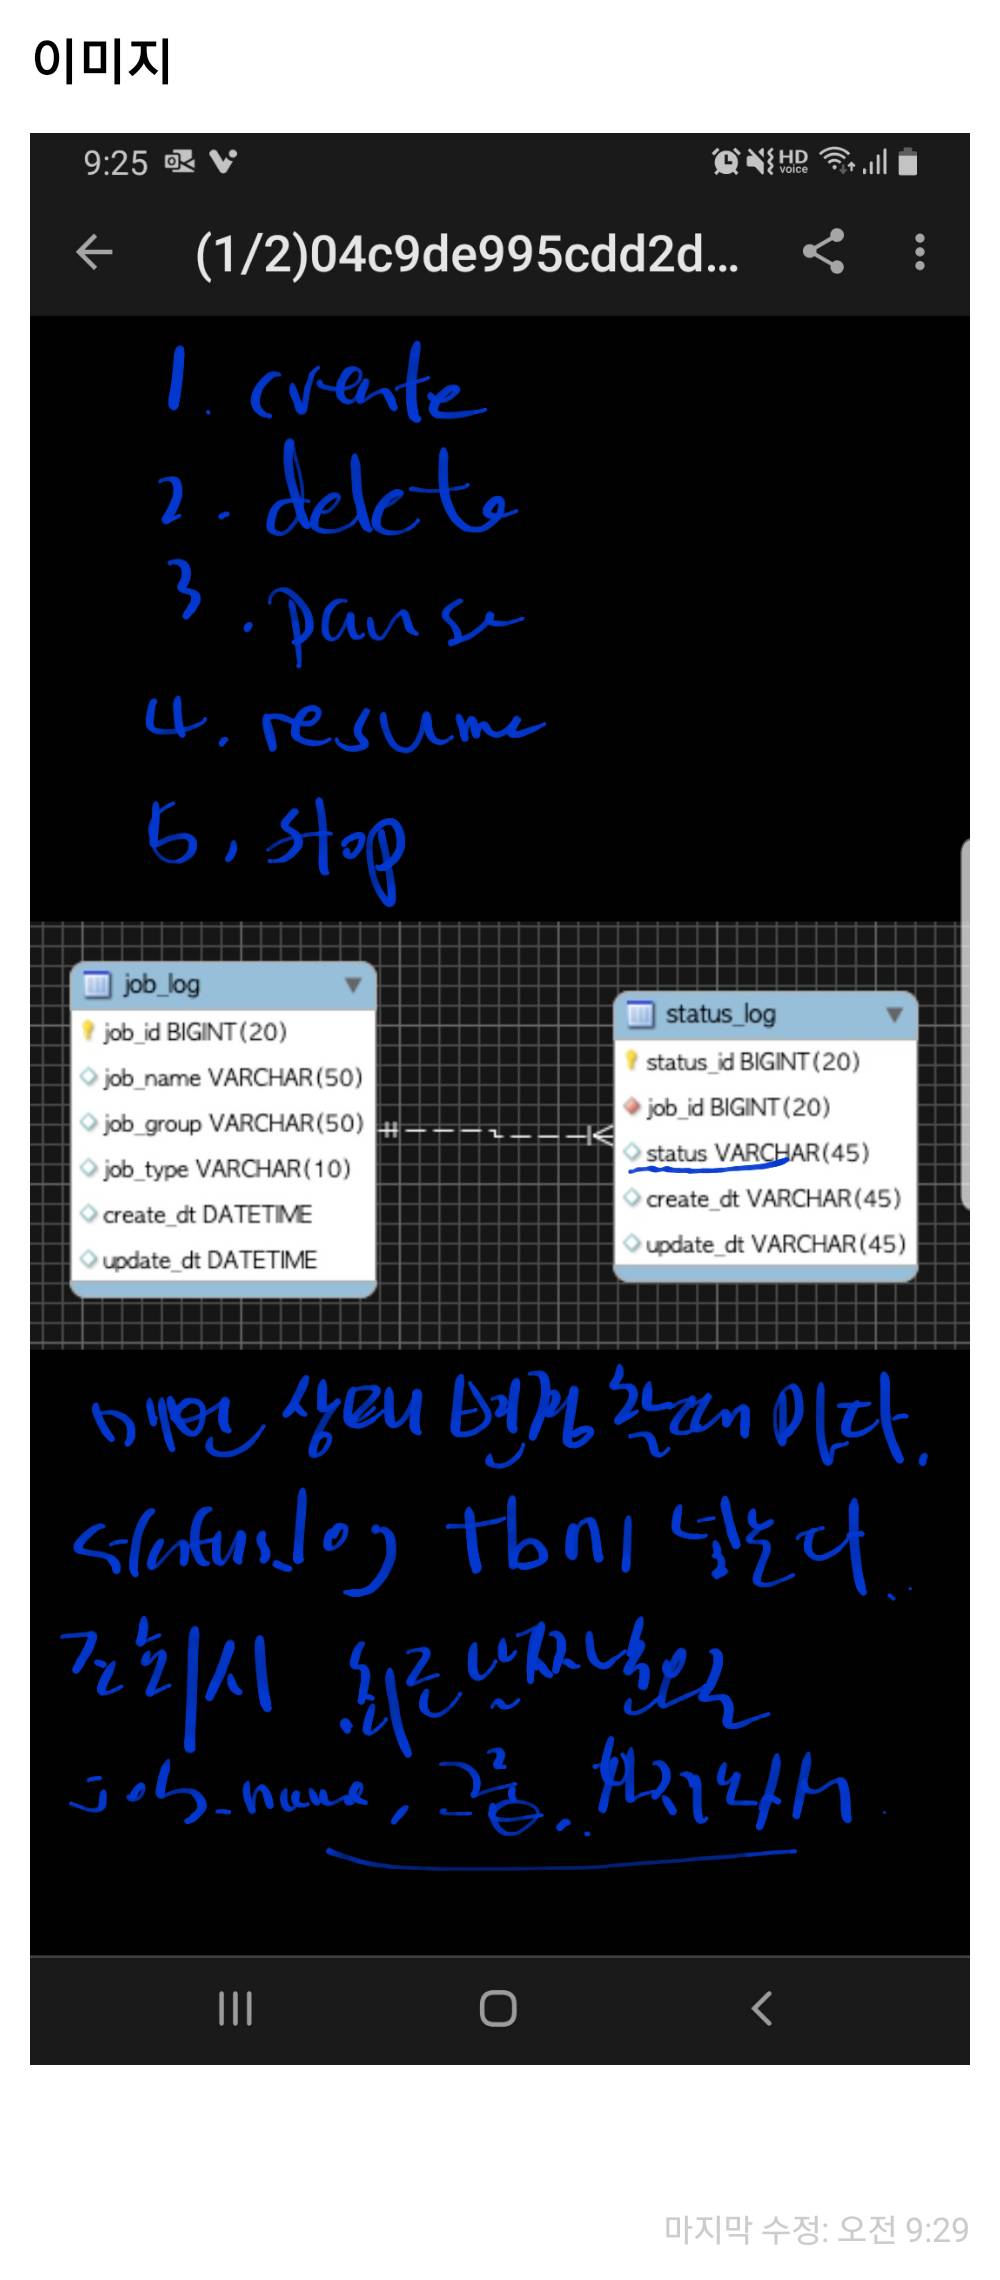 이미지
9:25 HD voice
(1/2)04c9de995cdd2d...
1. create
2. delete
3. pause
4. resume
5. stop
job_log
job_id BIGINT(20)
job_name VARCHAR(50)
job_group VARCHAR(50)
job_type VARCHAR(10)
create_dt DATETIME
update_dt DATETIME
status_log
status_id BIGINT(20)
job_id BIGINT(20)
status VARCHAR(45)
create_dt VARCHAR(45)
update_dt VARCHAR(45)
매번 상태 변경 할때 마다.
status_log tbl에 넣는다.
조회시 최근 날짜
job_name, 그룹,
마지막 수정: 오전 9:29